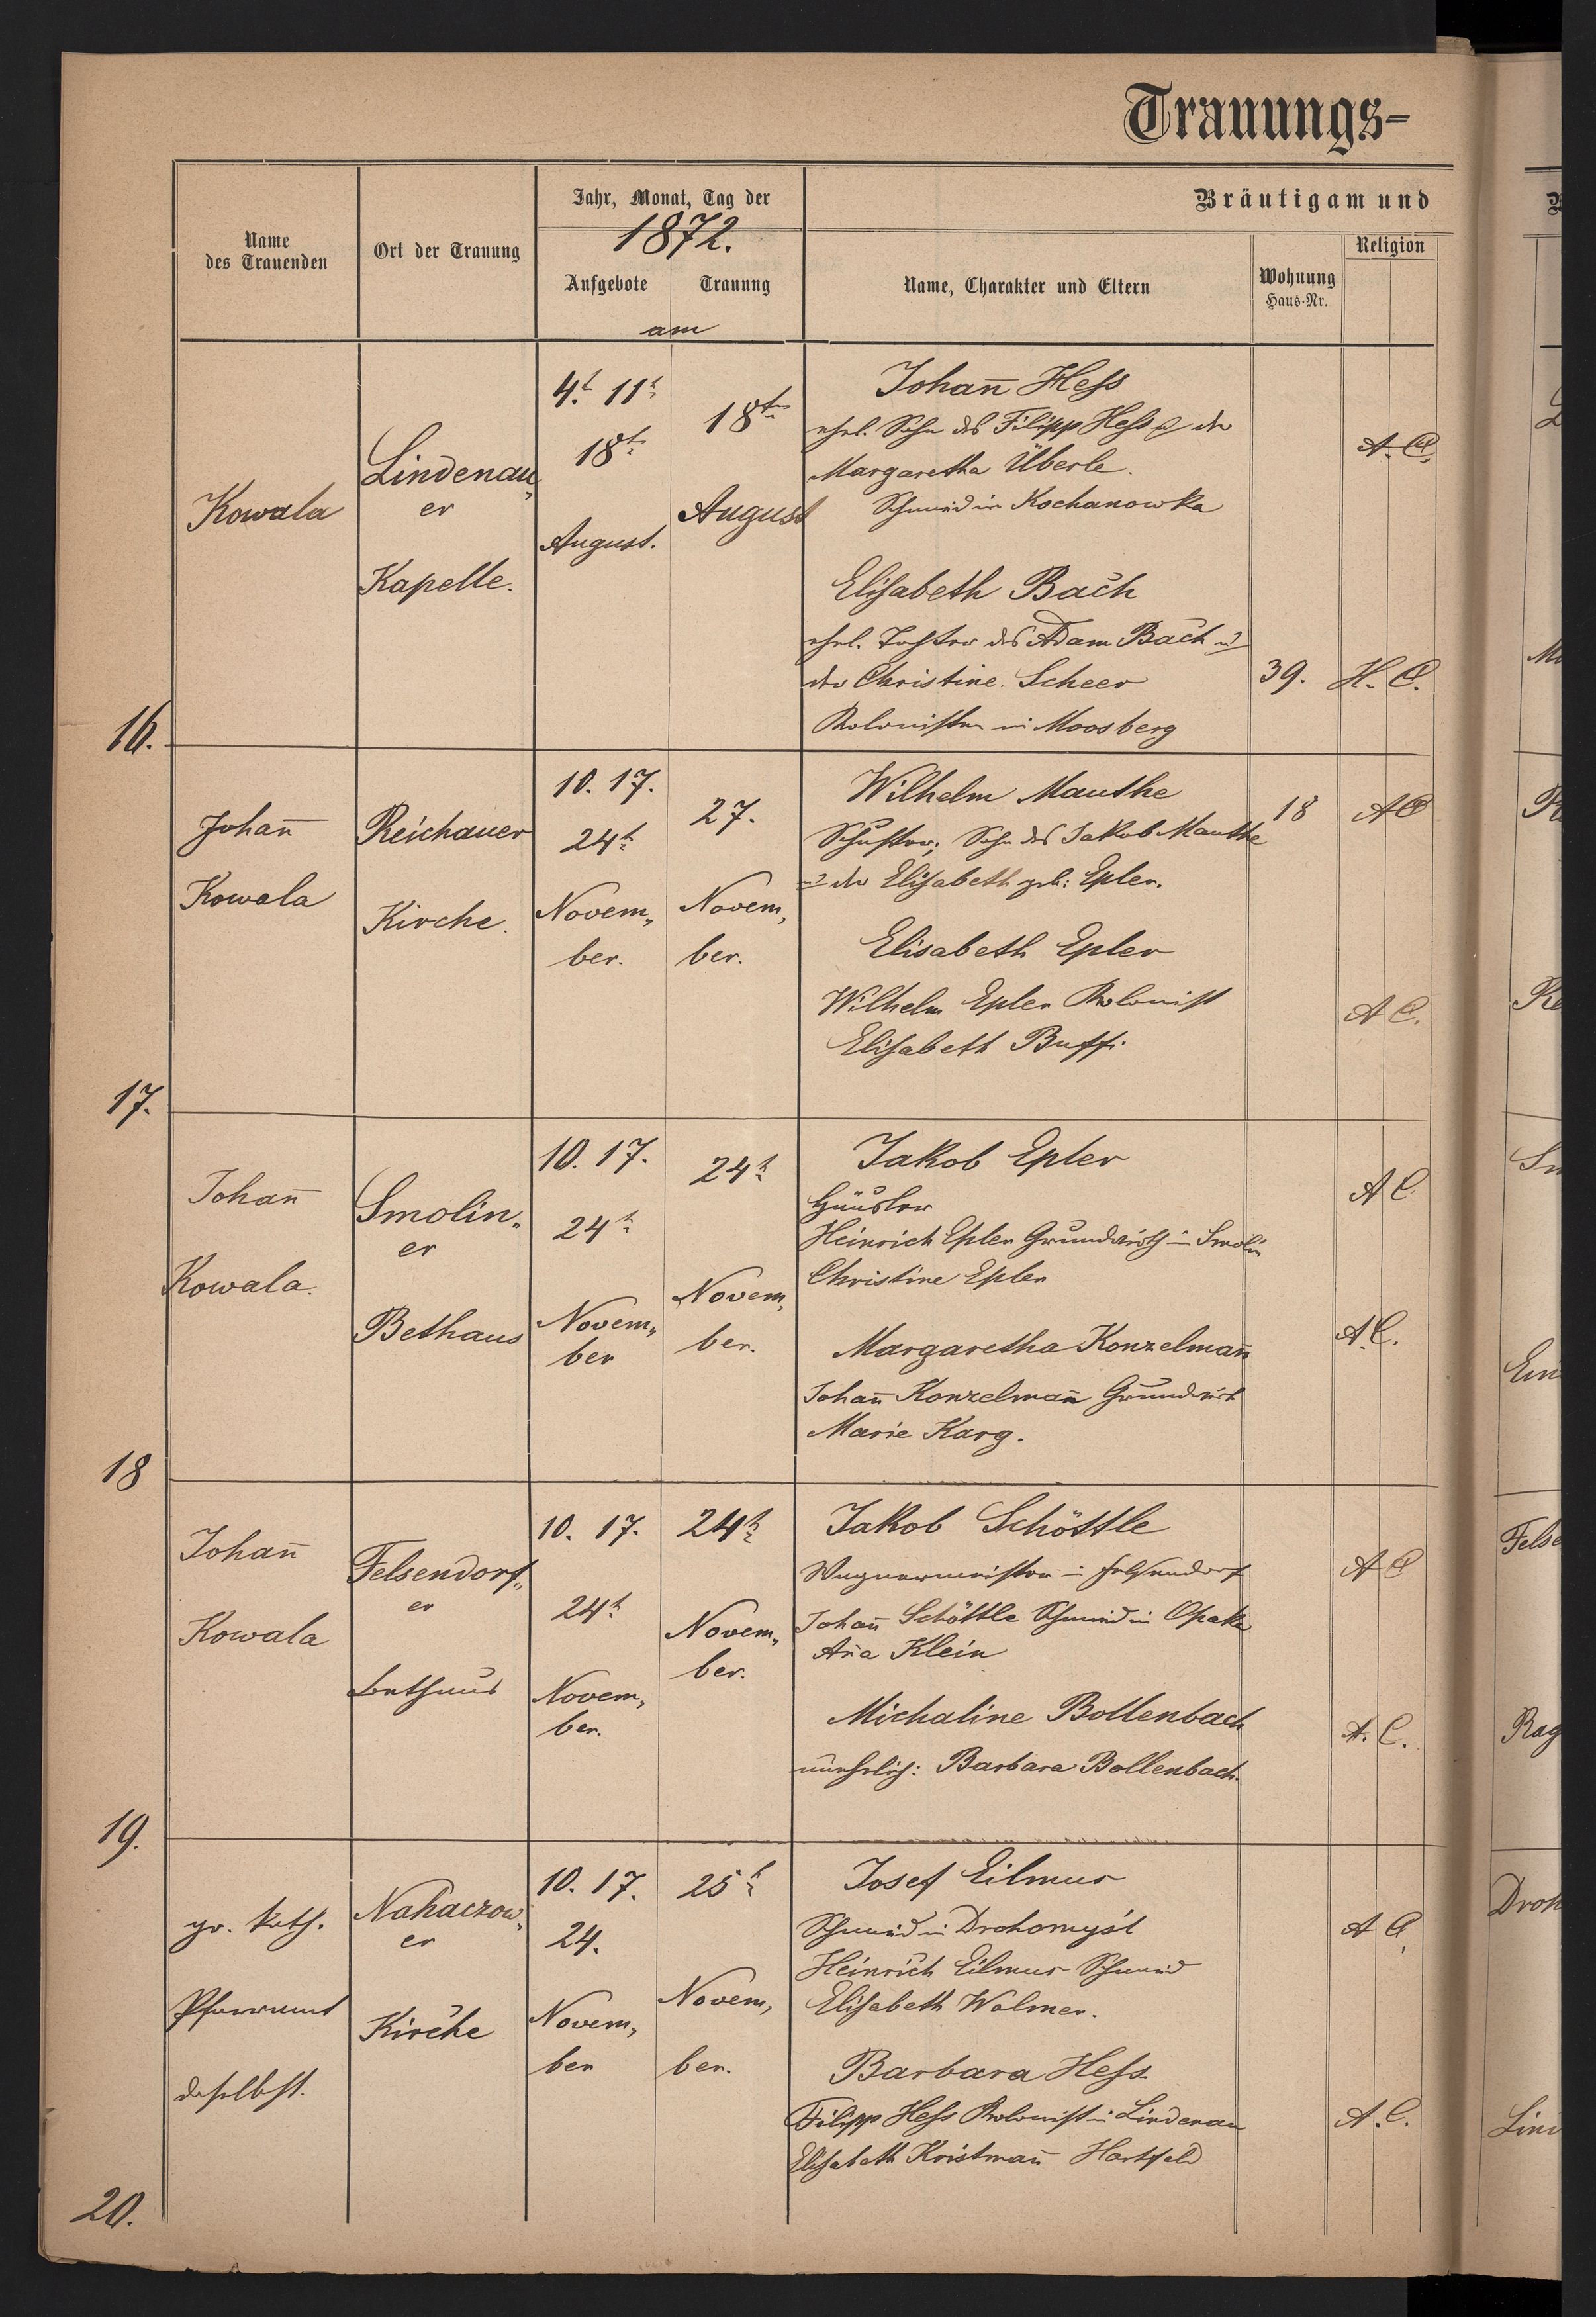 Trauungs-
Name des Trauenden
Ort der Trauung
Jahr, Monat, Tag der
1872.
Aufgebote
Trauung
am
Bräutigam und
Name, Charakter und Eltern
Wohnung
Haus-Nr.
Religion
16.
Kowala
Lindenau„
er
Kapelle.
4t. 11t.
18t.
August.
18t.
August
Johan̄ Hess
ehel. Sohn des Filipp Hess & der
Margaretha Überle.
Schmid in Kochanowka
A. C.
Elisabeth Bach
ehel. Tochter des Adam Bach u
der Christine Scheer
Kolonisten in Moosberg
39.
H. C.
17.
Johan̄
Kowala
Reichauer
Kirche.
10. 17.
24t.
Novem„
ber.
27.
Novem„
ber.
Wilhelm Mauthe
Schuster; Sohn des Jakob Mauthe
u der Elisabeth geb: Epler.
18
A C
Elisabeth Epler
Wilhelm Epler Kolonist
Elisabeth Buffi
A C.
18
Johan̄
Kowala.
Smolin„
er
Bethaus
10. 17.
24t.
Novem„
ber
24t.
Novem„
ber.
Jakob Epler
Häusler
Heinrich Epler Grundwirth in Smolin
Christine Epler
A C
Margaretha Konzelman̄
Johan̄ Konzelman̄ Grundwirt
Marie Karg.
A. C.
19.
Johan̄
Kowala
Felsendorf„
er
Bethaus
10. 17.
24t.
Novem„
ber.
24t.
Novem„
ber.
Jakob Schöttle
Wagnermeister in Felsendorf
Johan̄ Schöttle Schmid in Opaka
An̄a Klein
A C
Michaline Bollenbach
unehelich: Barbara Bollenbach.
A. C.
20.
gr. kath.
Pfarramt
daselbst.
Nahaczow„
er
Kirche
10. 17.
24.
Novem„
ber
25t.
Novem„
ber.
Josef Eilmus
Schmid in Drohomyśl
Heinrich Eilmus Schmid
Elisabeth Walmer.
A C
Barbara Hess.
Filipp Hess Kolonist in Lindenau
Elisabeth Kristman̄ Hartfeld
A. C.